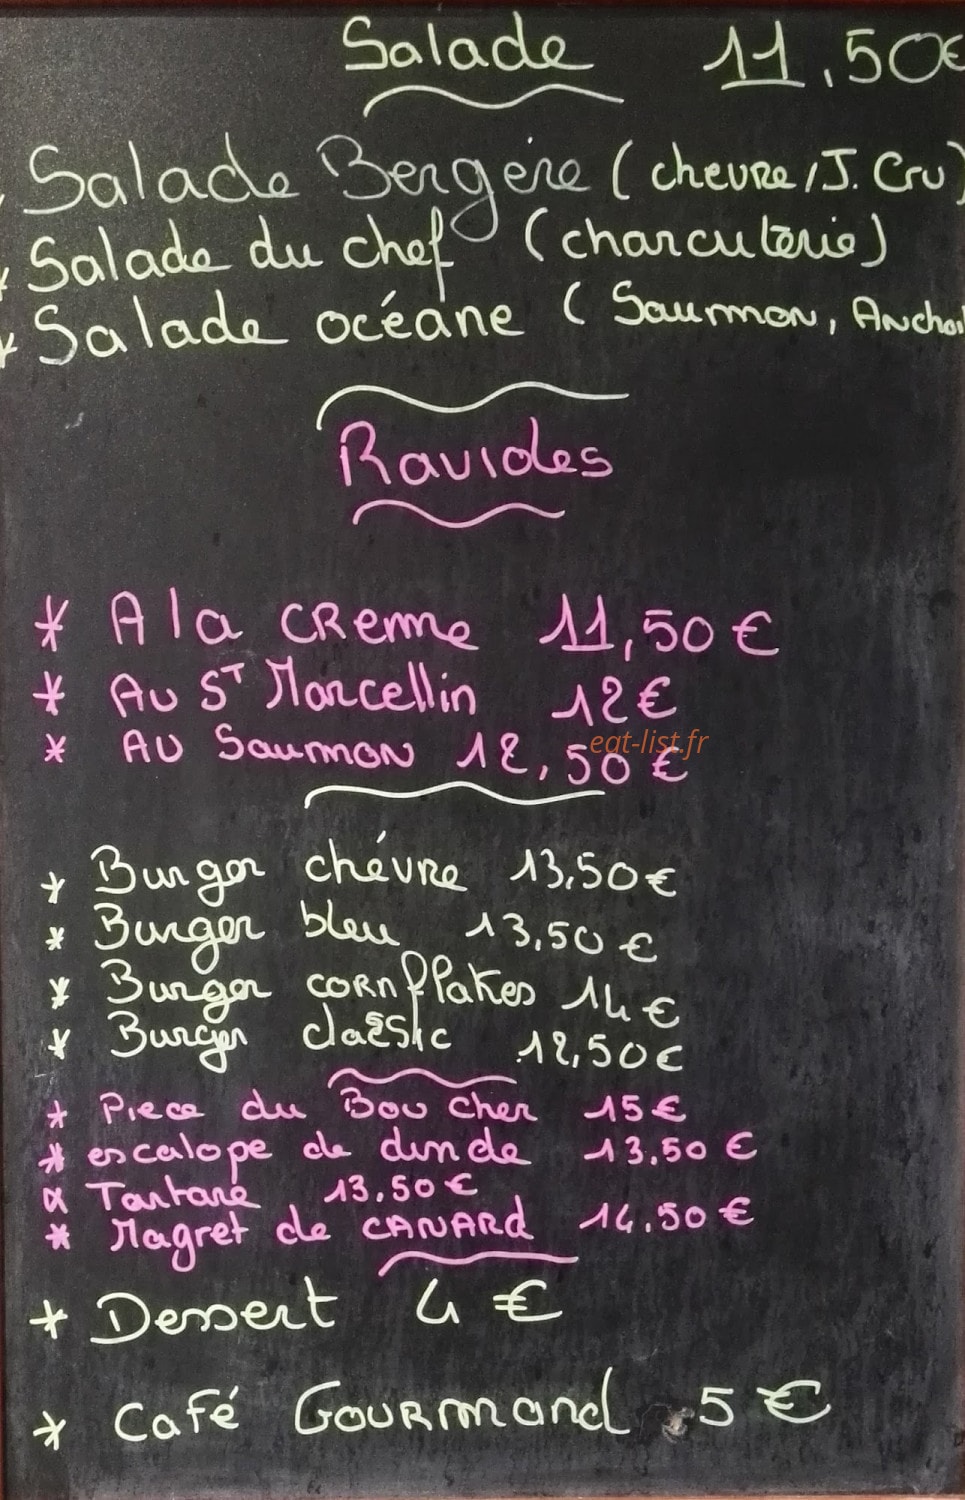 Salade 11,50€
Salade Bergère (chevre/J. Cru)
* Salade du chef (charcuterie)
* Salade océane (Saumon, Anchoi
Ravioles
* A la CReme 11,50€
* Au ST Marcellin 12€
* AU Saumon 12,50€
eat-list.fr
* Burger chévre 13,50€
* Burger bleu 13,50€
* Burger cornflakes 14€
* Burger classic 12,50€
* Piece du Boucher 15€
* escalope de dinde 13.50€
* Tartare 13.50€
* Magret de CANARd 14.50€
* Dessert 4€
* Café Gourmand 5€